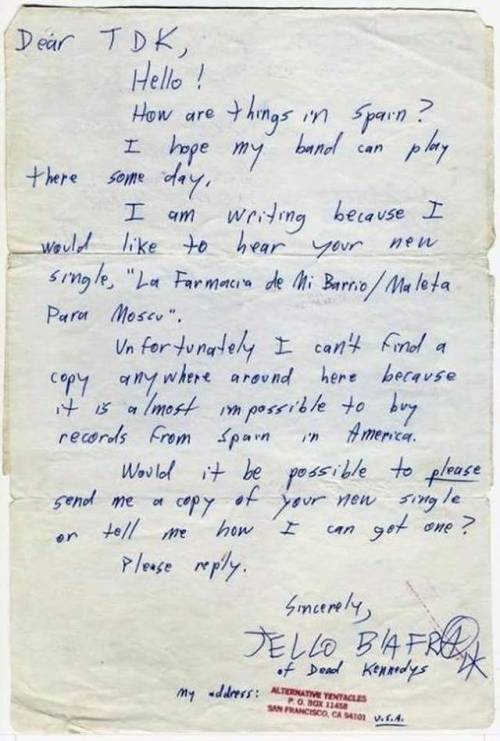 Dear TDK,
Hello!
How are things in Spain?
I hope my band can play
there some day.
I am writing because I
would like to hear your new
single, "La Farmacia de Mi Barrio/Maleta
Para Moscu".
Unfortunately I can't find a
copy anywhere around here because
it is almost impossible to buy
records from Spain in America.
Would it be possible to please
send me a copy of your new single
or tell me how I can get one?
Please reply.
Sincerely,
JELLO BIAFRA
of Dead Kennedys
My address: ALTERNATIVE TENTACLES
P. O. BOX 11458
SAN FRANCISCO, CA 94101 U.S.A.